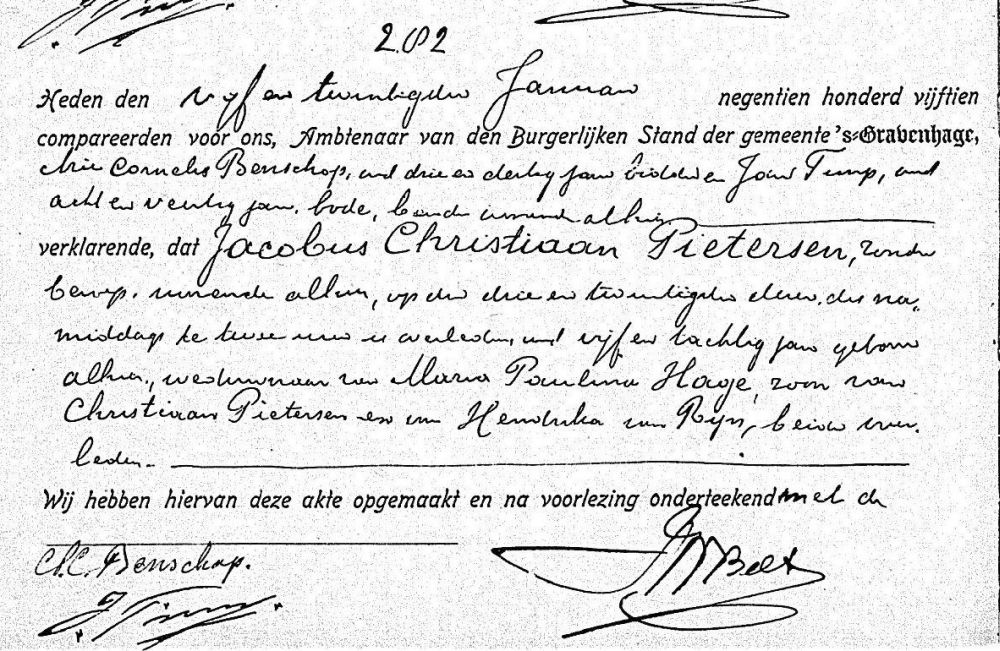 202
Heden den vijf en twintigsten Januari negentien honderd vijftien
compareerden voor ons, Ambtenaar van den Burgerlijken Stand der gemeente 's-Gravenhage,
Cornelis Benschop, oud drie en dertig jaar en oud
acht en veertig jaar, bode, beiden wonende alhier
verklarende, dat Jacobus Christiaan Pietersen, zonder
beroep, wonende alhier, op den drie en twintigsten dezer, des na-
middags te twee uur is overleden, oud vijf en tachtig jaar, geboren
alhier, weduwnaar van Maria Paulina Hage, zoon van
Christiaan Pietersen en van Hendrika van Rijn, beiden over-
leden.
Wij hebben hiervan deze akte opgemaakt en na voorlezing onderteekend met de
Ch.C. Benschop.